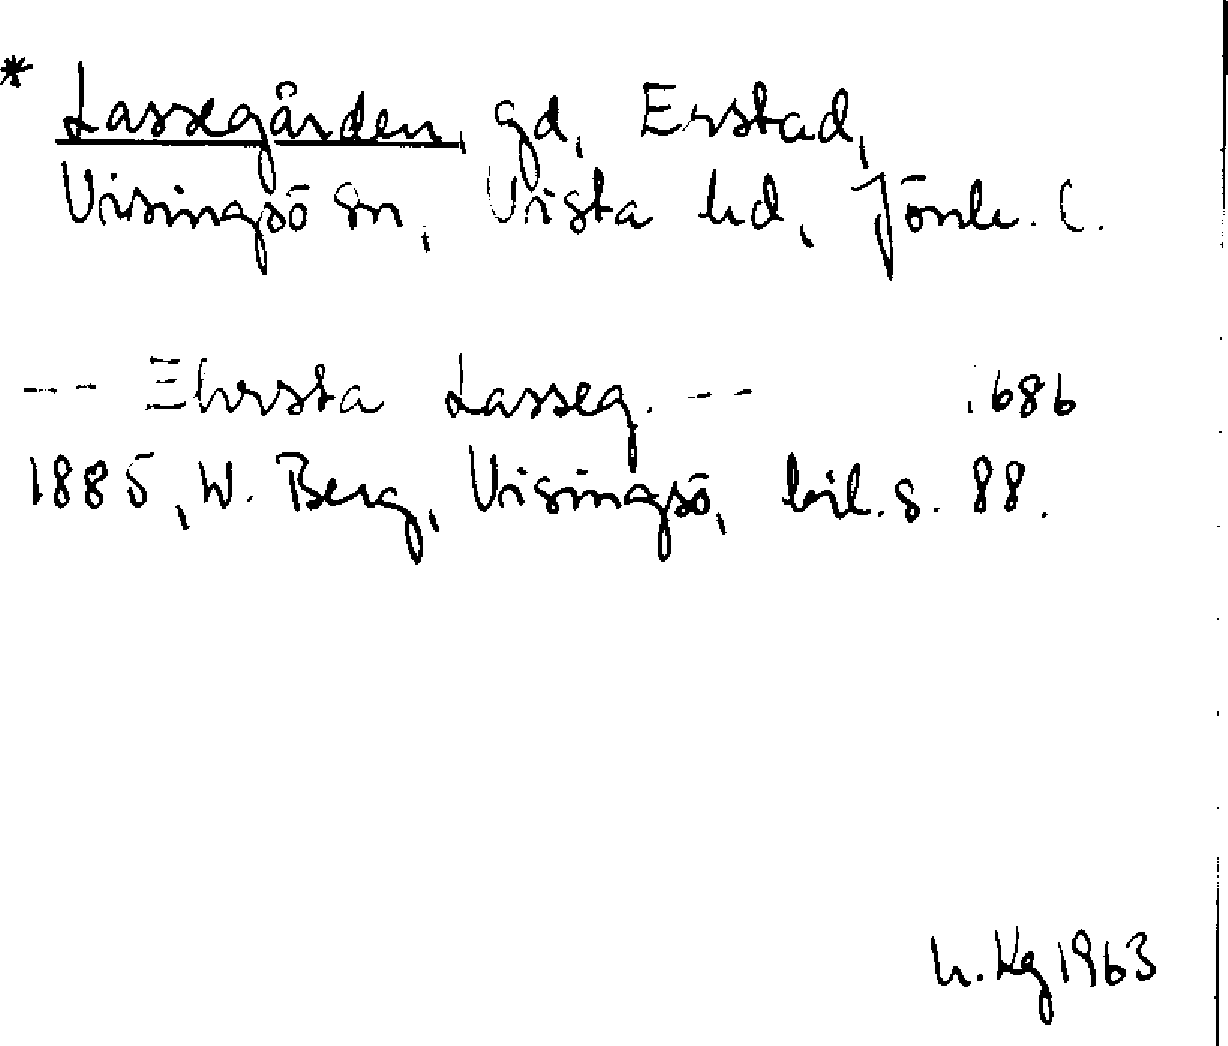 * Lassegården, gd, Erstad,
Visingsö sn, Vista hd, Jönk. l.
-- Ehrsta Lasseg. -- 1686
1885, W. Berg, Visingsö, bil. s. 88.
h. Kg 1963